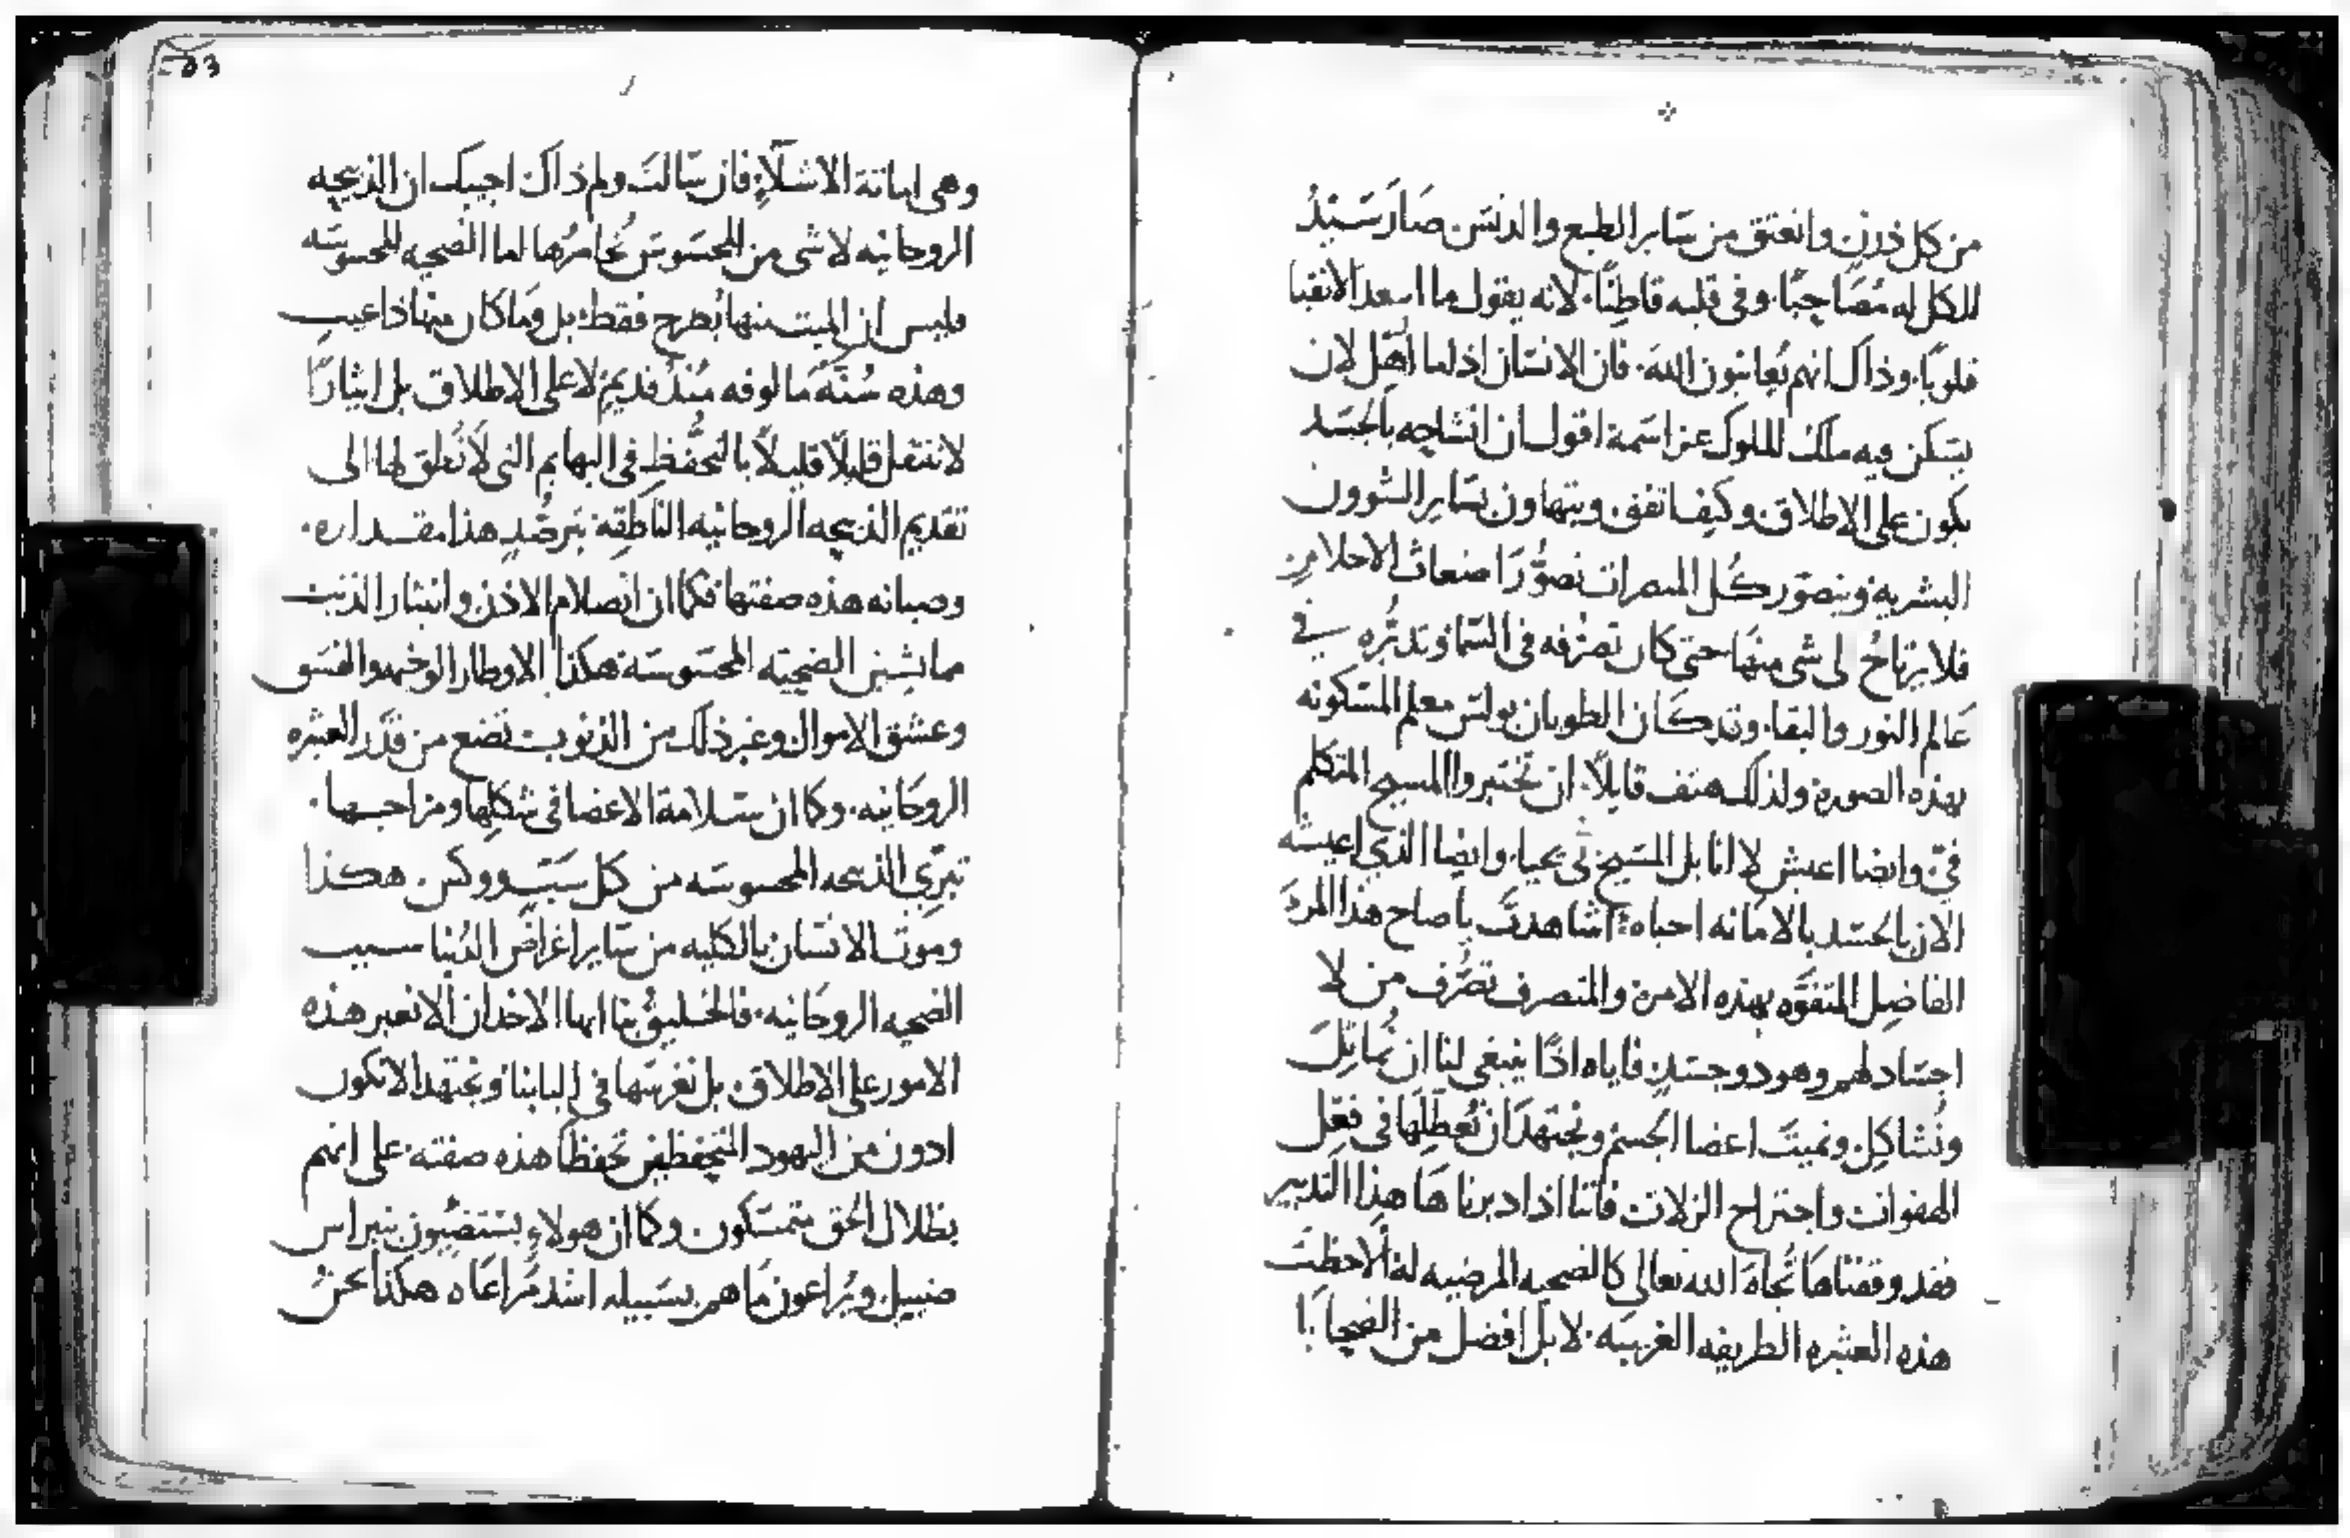 من كل درن وانعتق من ساير الطبع والدنس صار سَيّدُ
للكل له مُصَاحِبًا. وفى قلبه قاطِنًا. لانه يقول ما اسعد الانقيا
قلوبًا. وذاك انهم يُعاينون الله. فان الانسان اذا ما اُهّل لان
يسكن فيه ملك الملوك عز اسمه اقول ان انشاجه بالجسد
يكون على الاطلاق وكيف اتفق. ويتهاون بساير الشوون
البشريه ويتصوّر كُل المبصرات تصوُّرَ اضغاث الاحلام
فلا يرتاحُ الى شى منها حتى كان تصرُّفه فى السَّما وتدبُّره في
عَالم النور والبقا. وقد كان الطوبان بولس معلم المسكونه
بهذه الصوره ولذلك هتف قايلاً. ان تختبروا المسيح المتكلم
فيّ. وايضا اعيش لا انا بل المسيح فى يحيا. وايضا الذي اعيشه
الان بالجسد بالامانه احياه: اشاهدتَ يا صاح هذا المرءَ
الفاضِل المتفوّه بهذه الامن والمتصرف تصرُّف من لا
اجساد لهم وهو ذو جسد. فاياه اذًا ينبغى لنا ان نُماثِلَ
ونُشاكل. ونميتَ اعضا الجسم ونجتهدَ ان نُعطّلها فى فعل
الهفوات واجتراح الزلات فاننا اذا دبرناها هذا التدبير
فقد وقفناها تُجاهَ الله تعالى كالضحيه المرضيه له الاحظتَ
هذه العشره الطريفه الغريبه. لا بل افضل من الضحايا
53
وهى اماتة الاشلاءِ. فان سَالتَ ولم ذاك اجيبك ان الذبيحه
الروحانيه لا شى من المحسوس يُخامرُها اما الضحيه المحسوسَه
فليس ان الميت منها يُطرح فقط. بل وما كان منها ذا عيب
وهذه سُنّةَ مالوفه مُنذُ قديم. لا على الاطلاق بل ايثارًا
لاننتقل قليلًا قليلًا بالتحفُّظ فى البهايم التى لا نُطق لها الى
تقديم الذبيحه الروحانيه الناطِقه بترصّدٍ هذا مقداره.
وصيانه هذه صفتها فكما ان انصلام الاذن وانبتار الذنب
مما يشين الضحيّه المحسوسه هكذا الاوطار الوخيمه والفسق
وعشق الاموال وغير ذلك من الذنوب تضع من قدَر العشره
الروحَانيه. وكما ان سلامة الاعضا فى شكلها ومزاجها.
تبرّي الذبيحه المحسوسه من كل سبب ووكس. هكذا
وموت الانسان بالكليه من ساير اغراض الدُنيا سبب
الضحيه الروحَانيه. فالخليقُ بنا ايها الاخدان الا نعبر هذه
الامور على الاطلاق. بل نغرسها فى البابنا ونجتهد الا نكون
ادون من اليهود المتحفظين تحفظًا هذه صفته. على انهم
بظلال الحق متمسّكون. وكما ان هولاءِ يستضيّون بنبراس
ضييل. ويُراعون مَا هم بسَبيله اشد مُراعَاه هكذا نحنُ